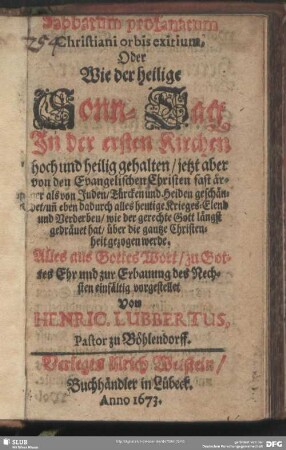 Sabbatum profanatum
254
Christiani orbis exitium,
Oder
Wie der heilige
Sonn-Tag
In der ersten Kirchen
hoch und heilig gehalten/ jetzt aber
von den Evangelischen Christen fast är-
ger als von Juden/ Türcken und Heiden geschän-
det/ uñ eben dadurch alles heutige Krieges-Elend
und Verderben/ wie der gerechte Gott längst
gedräuet hat/ über die gantze Christen-
heit gezogen werde,
Alles aus Gottes Wort/ zu Got-
tes Ehr und zur Erbauung des Nech-
sten einfältig vorgestellet
Von
HENRIC. LUBBERTUS,
Pastor zu Böhlendorff.
Verlegts Ulrich Wetstein/
Buchhändler in Lübeck.
Anno 1673.
SLUB
DFG